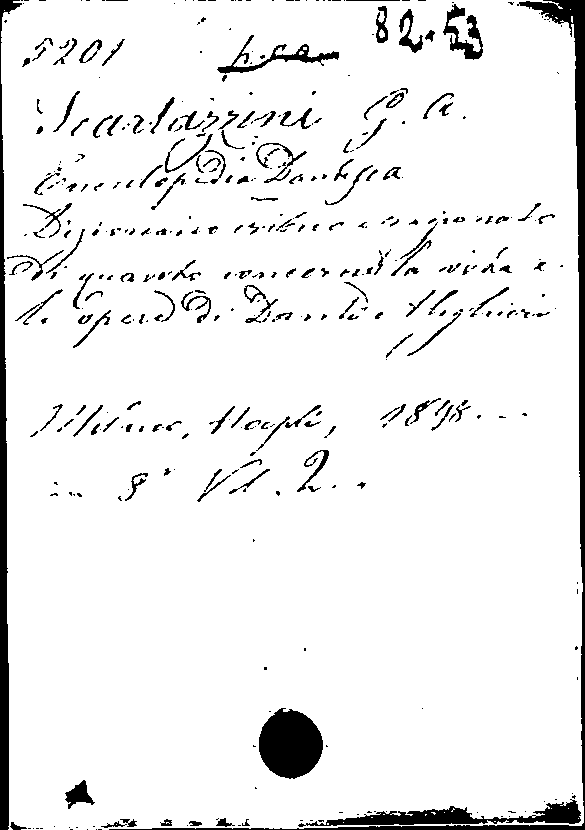 5201 82.53
Scartazzini G. A.
Enciclopedia Dantesca
Dizionario critico e ragionato
di quanto concerne la vita e
le opere di Dante Alighieri
Milano, Hoepli, 1898...
in 8° Vol. 2..